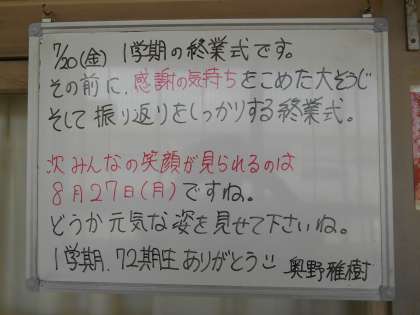 7/20(金) 1学期の終業式です。
その前に、感謝の気持ちをこめた大そうじ
そして振り返りをしっかりする終業式。
次みんなの笑顔が見られるのは
8月27日(月)ですね。
どうか元気な姿を見せて下さいね。
1学期、72期生ありがとう
奥野雅樹